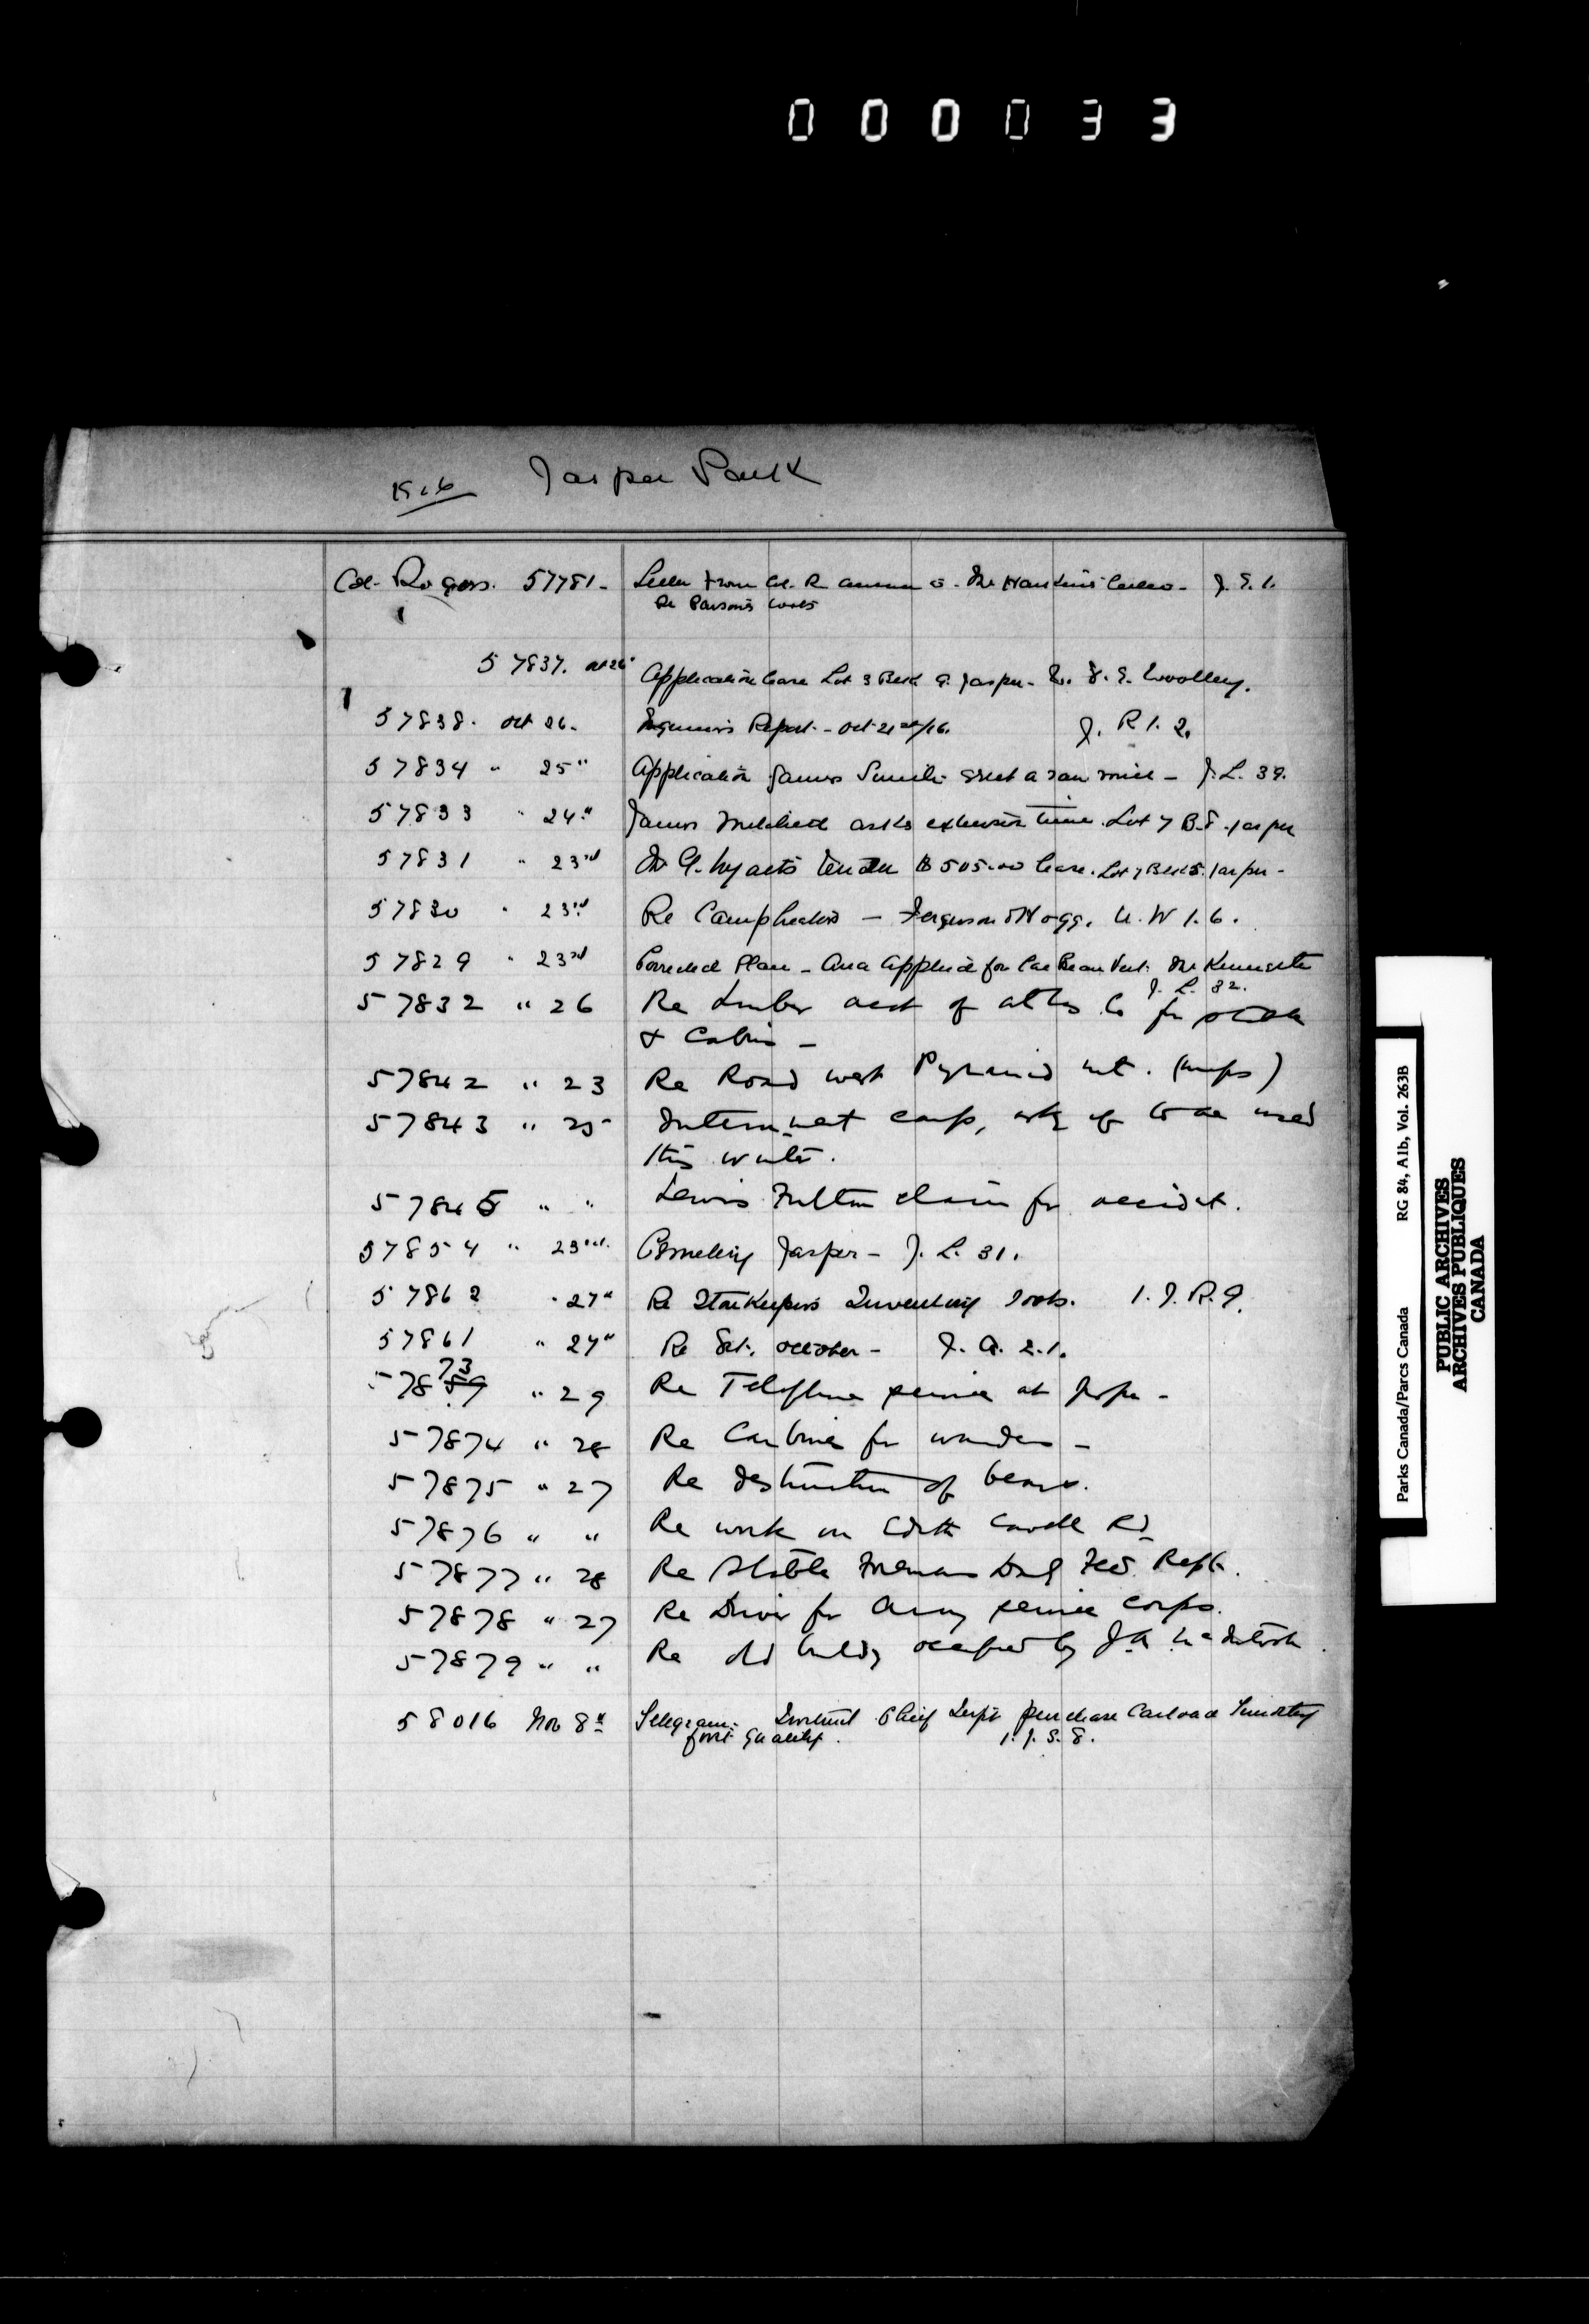 000033
1916 Jasper Park
Col. Rogers. 57781 - Letter from Col. R. - J. E. 1.
Re Parsons
57837. Oct 26" Application lease Lot 3 Block 9. Jasper - J. E. Woolley.
57838. Oct 26. Engineers Report - Oct 21st/16. J. R 1. 2.
57834 " 25" Application James Smith erect a saw mill - J. L. 39.
57833 " 24" James Mitchell asks extension time. Lot 7 B.8. Jasper
57831 " 23rd tender $505.00 lease. Lot 7 Block 5. Jasper -
57830 " 23rd Re Campbells - Ferguson & Hogg. U. W 1. 6.
57829 " 23rd Corrected Plan - Area applied for
J. L. 32.
57832 " 26 Re Lumber acct of Co for
& Cabin -
57842 " 23 Re Road west Pyramid mt. (maps)
57843 " 25 Internment camp, to be used
this winter.
57845 " " Lewis Fulton claim for accident.
57854 " 23rd. Cemetery Jasper - J. L. 31.
57862 " 27" Re Storekeepers Inventory Books. 1. J. R. 9.
57861 " 27" Re October - J. A. 2. 1.
73
57859 " 29 Re Telephone service at Jasper -
57874 " 28 Re Carbines for wardens -
57875 " 27 Re destruction of bears.
57876 " " Re work on Edith Cavell Rd
57877 " 28 Re Stable Foremans Feed Rept.
57878 " 27 Re Driver for Army service corps.
57879 " " Re old bldg occupied by J A McIntosh
58016 Nov 8th Telegram - Instruct Chief Supt purchase Carload Timothy
first quality. 1. J. S. 8.
Parks Canada/Parcs Canada RG 84, Alb, Vol. 263B
PUBLIC ARCHIVES
ARCHIVES PUBLIQUES
CANADA